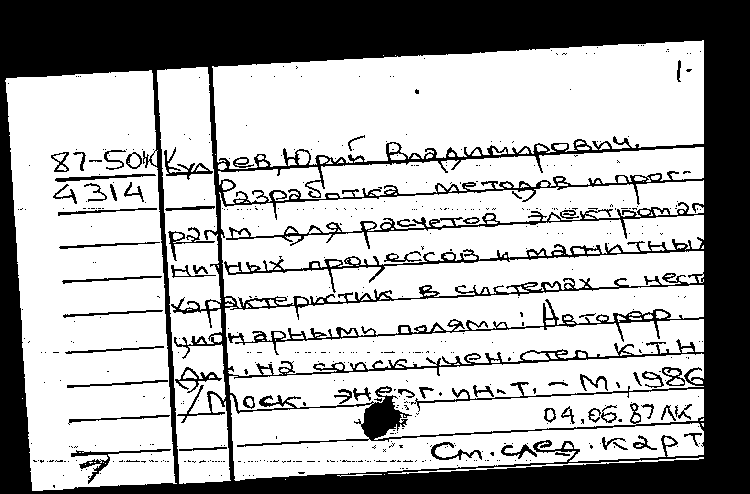 1.
87-50КК Кулаев, Юрий Владимирович.
4314 Разработка методов и прог-
рамм для расчетов электромаг
нитных процессов и магнитных
характеристик в системах с неста
ционарными полями: Автореф.
дис. на соиск. учен. степ. к.т.н
/Моск. энерг. ин-т. - М., 1986
04.06.87 ЛК
См. след. карт